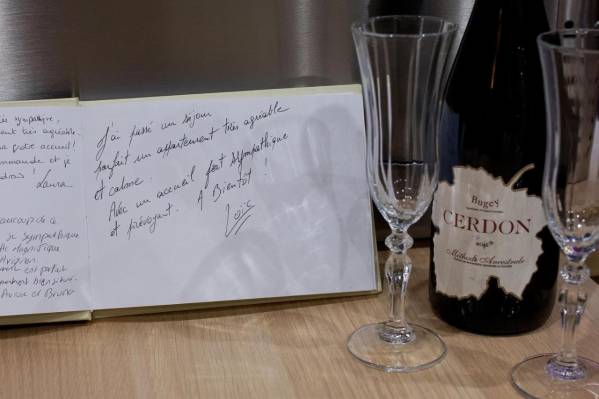 sympathique,
ment très agréable
votre accueil !
commande et je
Laura
beaucoup de
sympathique
magnifique
Avignon
est parfait
et Bruno
J'ai passé un séjour
parfait un appartement très agréable
et calme.
Avec un accueil fort sympathique
et prévoyant. A Bientôt !
Loïc
Bugey
CERDON
Méthode Ancestrale